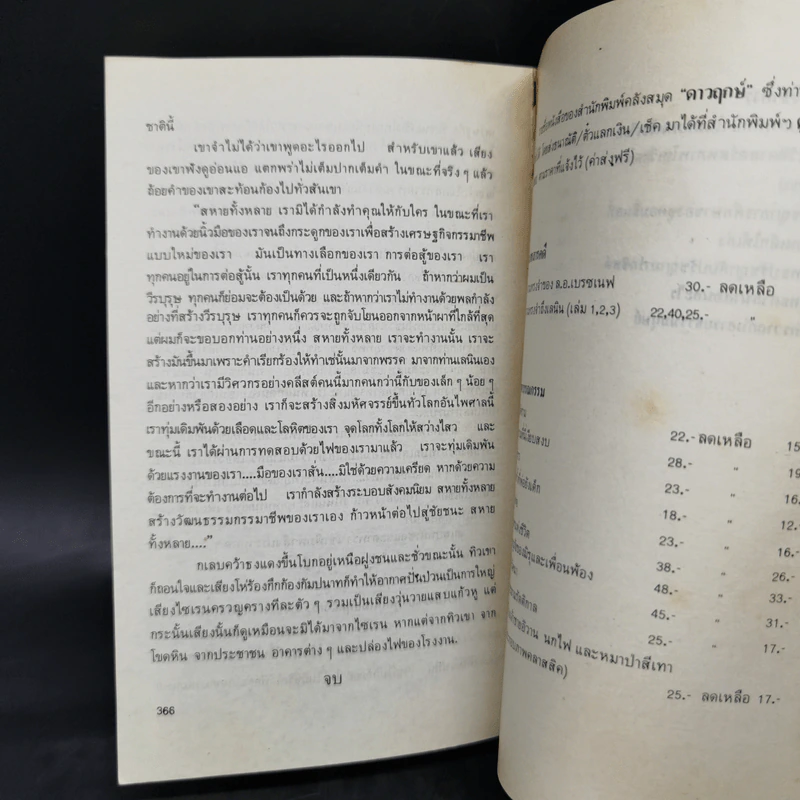 ชาตินี้
เขาจำไม่ได้ว่าเขาพูดอะไรออกไป สำหรับเขาแล้ว เสียง
ของเขาฟังดูอ่อนแอ แตกพร่าไม่เต็มปากเต็มคำ ในขณะที่จริง ๆ แล้ว
ถ้อยคำของเขาสะท้อนก้องไปทั่วสันเขา
“สหายทั้งหลาย เรามิได้กำลังทำคุณให้กับใคร ในขณะที่เรา
ทำงานด้วยนิ้วมือของเราจนถึงกระดูกของเราเพื่อสร้างเศรษฐกิจกรรมาชีพ
แบบใหม่ของเรา มันเป็นทางเลือกของเรา การต่อสู้ของเรา เรา
ทุกคนอยู่ในการต่อสู้นั้น เราทุกคนที่เป็นหนึ่งเดียวกัน ถ้าหากว่าผมเป็น
วีรบุรุษ ทุกคนก็ย่อมจะต้องเป็นด้วย และถ้าหากว่าเราไม่ทำงานด้วยพลกำลัง
อย่างที่สร้างวีรบุรุษ เราทุกคนก็ควรจะถูกจับโยนออกจากหน้าผาที่ใกล้ที่สุด
แต่ผมก็จะขอบอกท่านอย่างหนึ่ง สหายทั้งหลาย เราจะทำงานนั้น เราจะ
สร้างมันขึ้นมาเพราะคำเรียกร้องให้ทำเช่นนั้นมาจากพรรค มาจากท่านเลนินเอง
และหากว่าเรามีวิศวกรอย่างคลีสต์คนนี้มากคนกว่านี้กับของเล็ก ๆ น้อย ๆ
อีกอย่างหรือสองอย่าง เราก็จะสร้างสิ่งมหัศจรรย์ขึ้นทั่วโลกอันไพศาลนี้
เราทุ่มเดิมพันด้วยเลือดและโลหิตของเรา จุดโลกทั้งโลกให้สว่างไสว และ
ขณะนี้ เราได้ผ่านการทดสอบด้วยไฟของเรามาแล้ว เราจะทุ่มเดิมพัน
ด้วยแรงงานของเรา....มือของเราสั่น....มิใช่ด้วยความเครียด หากด้วยความ
ต้องการที่จะทำงานต่อไป เรากำลังสร้างระบอบสังคมนิยม สหายทั้งหลาย
สร้างวัฒนธรรมกรรมาชีพของเราเอง ก้าวหน้าต่อไปสู่ชัยชนะ สหาย
ทั้งหลาย....”
กเลบคว้าธงแดงขึ้นโบกอยู่เหนือฝูงชนและชั่วขณะนั้น ทิวเขา
ก็ถอนใจและเสียงโห่ร้องกึกก้องกัมปนาทก็ทำให้อากาศปั่นป่วนเป็นการใหญ่
เสียงไซเรนครวญครางทีละตัว ๆ รวมเป็นเสียงวุ่นวายแสบแก้วหู แต่
กระนั้นเสียงนั้นก็ดูเหมือนจะมิได้มาจากไซเรน หากแต่จากทิวเขา จาก
โขดหิน จากประชาชน อาคารต่าง ๆ และปล่องไฟของโรงงาน.
จบ
366
หนังสือของสำนักพิมพ์คลังสมุด “ดาวฤกษ์” ซึ่งท่า
ธนาณัติ/ตั๋วแลกเงิน/เช็ค มาได้ที่สำนักพิมพ์ฯ
ราคาที่แจ้งไว้ (ค่าส่งฟรี)
ของ ล.อ.เบรซเนฟ 30.- ลดเหลือ
เลนิน (เล่ม 1,2,3) 22,40,25.- ”
วรรณกรรม
22.- ลดเหลือ 15
28.- ” 19
23.- ” 16.
18.- ” 12.
ชีวิต 23.- ” 16.-
และเพื่อนพ้อง 38.- ” 26.-
48.- ” 33.-
45.- ” 31.-
นกไฟ และหมาป่าสีเทา 25.- ” 17.-
ภาพคลาสสิค) 25.- ลดเหลือ 17.-